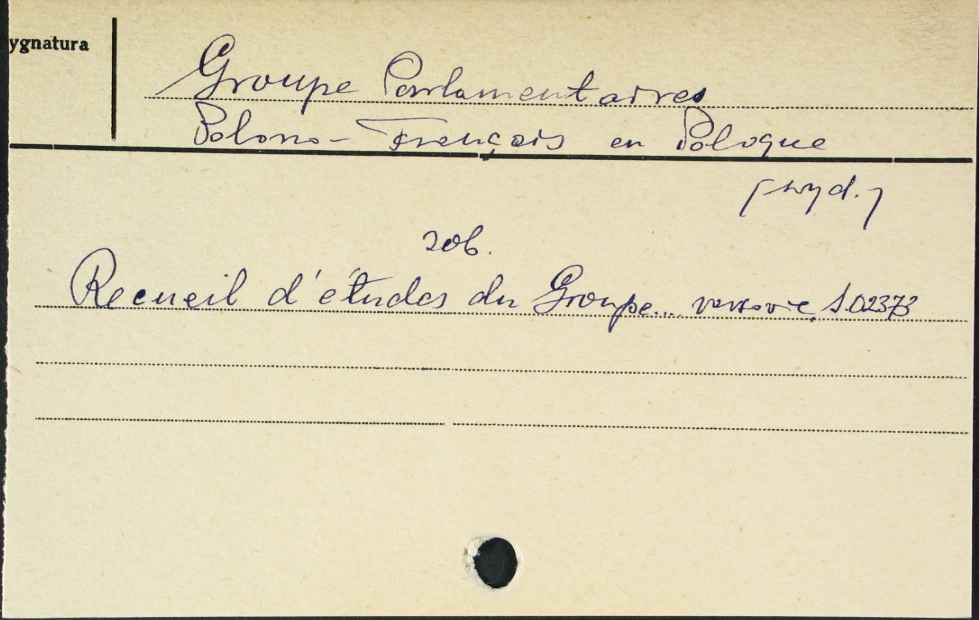 ygnatura
Groupe Parlamentaires
Polono-Français en Pologne
[wyd.]
zob.
Recueil d'études du Groupe... Varsovie,